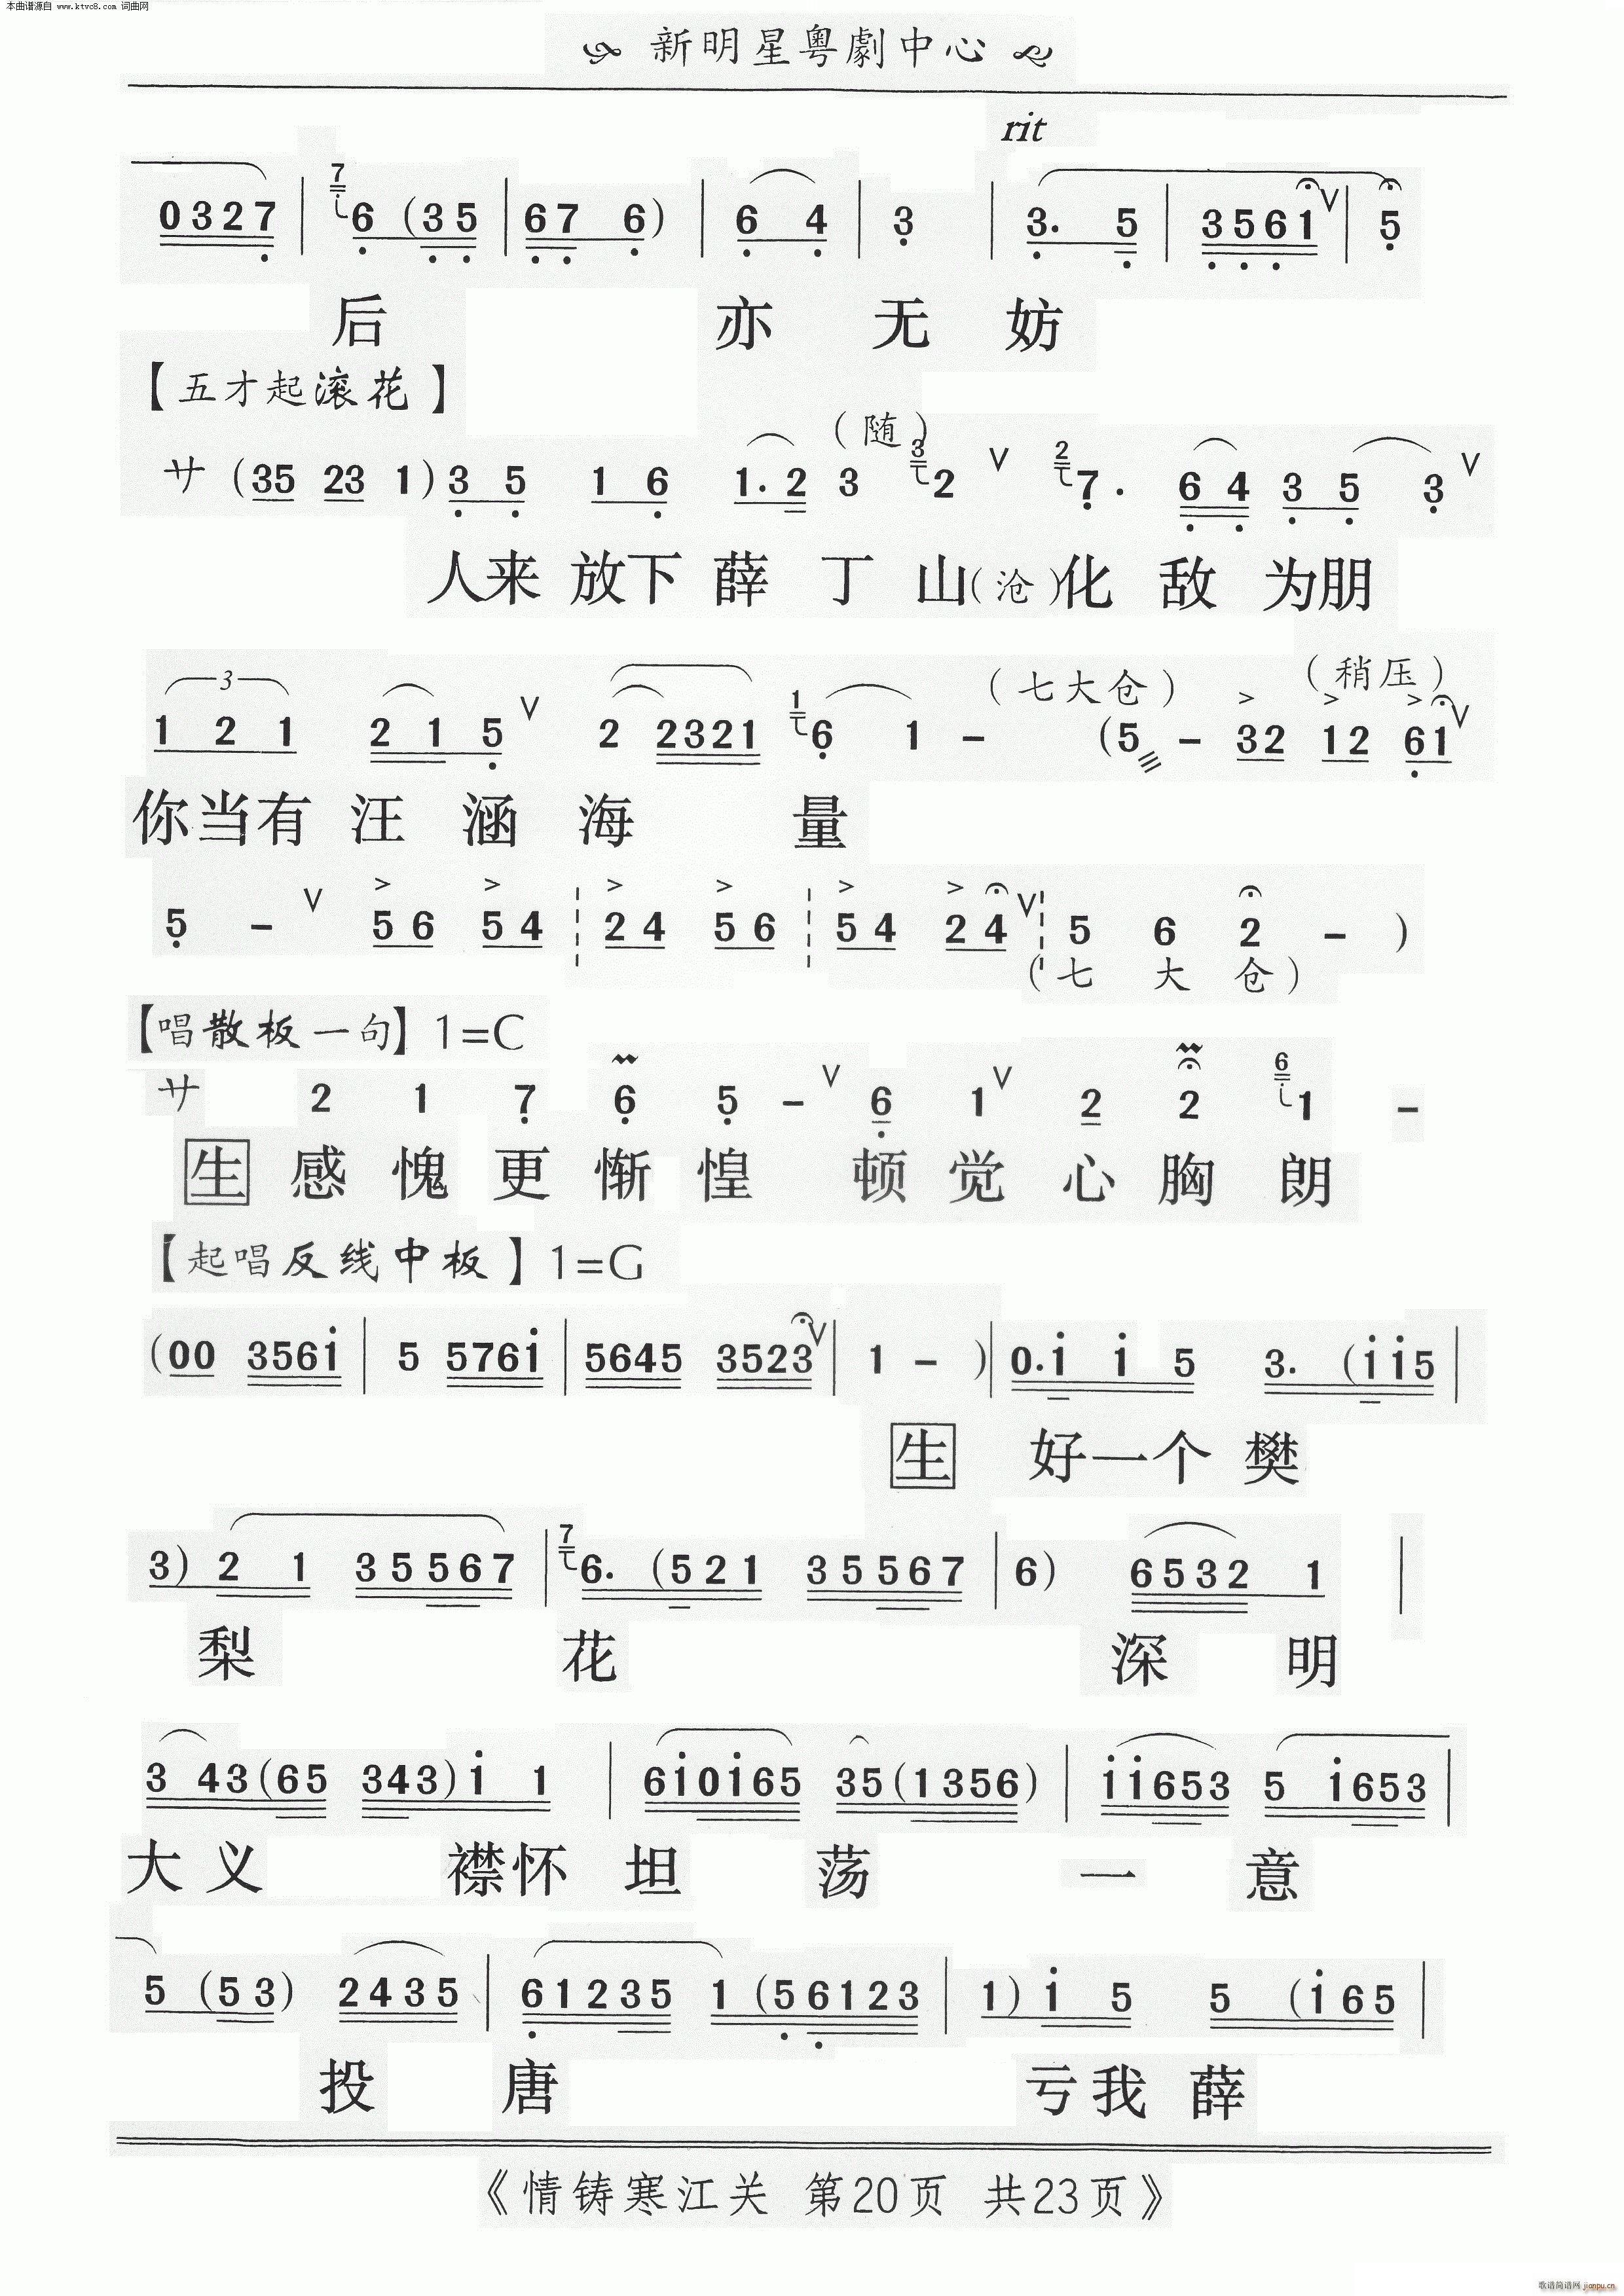 本曲谱源自 www.ktvc8.com 词曲网
新明星粤劇中心
rit
0327 | 7 6 (35 | 67 6) | 6 4 | 3 | 3. 5 | 3561 V | 5
后 亦 无 妨
【五才起滚花】
(随)
サ (35 23 1) 3 5 1 6 1.2 3 3 2 V 2 7. 6 4 3 5 3 V
人来 放下 薛 丁 山(沧)化 敌 为朋
(七大仓) (稍压)
3
1 2 1 2 1 5 V 2 2321 1 6 1 – (5 – 32 12 61 V
你当有 汪 涵 海 量
5 – V 56 54 ¦ 24 56 ¦ 54 24 V ¦ 5 6 2 – )
(七 大 仓)
【唱散板一句】1=C
サ 2 1 7 6 5 – V 6 1 V 2 2 6 1 –
生 感 愧 更 惭 惶 顿 觉 心 胸 朗
【起唱反线中板】1=G
(00 3561 | 5 5761 | 5645 3523 V | 1 – ) | 0.1 1 5 3. (115 |
生 好一个 樊
3) 2 1 35567 | 7 6. (521 35567 | 6) 6532 1 |
梨 花 深 明
3 43(65 343)1 1 | 610165 35(1356) | 11653 5 1653 |
大 义 襟怀 坦 荡 一 意
5 (53) 2435 | 61235 1 (56123 | 1) 1 5 5 (165 |
投 唐 亏我 薛
《情铸寒江关 第20页 共23页》
歌谱简谱网 jianpu.cn